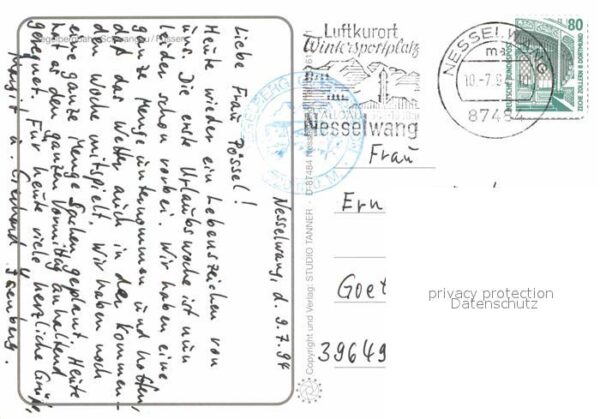 Tegelbergbahn Schwangau / Füssen
Nesselwang, d. 9.7.94
Liebe Frau Pössel!
Heute wieder ein Lebenszeichen von
uns. Die erste Urlaubswoche ist nun
leider schon vorbei. Wir haben eine
ganze Menge unternommen und hoffen,
daß das Wetter auch in der kommen-
den Woche mitspielt. Wir haben noch
eine ganze Menge Sachen geplant. Heute
hat es den ganzen Vormittag anhaltend
geregnet. Für heute viele herzliche Grüße
Margit u. Isenberg.
Copyright und Verlag: STUDIO TANNER · D-87484 Nesselwang
Luftkurort
Wintersportplatz
ALLGÄU
Nesselwang
NESSELWANG
10.-7.9
87484
80
DEUTSCHE BUNDESPOST
ZECHE ZOLLERN II DORTMUND
Frau
Ern
Goet
39649
privacy protection
Datenschutz